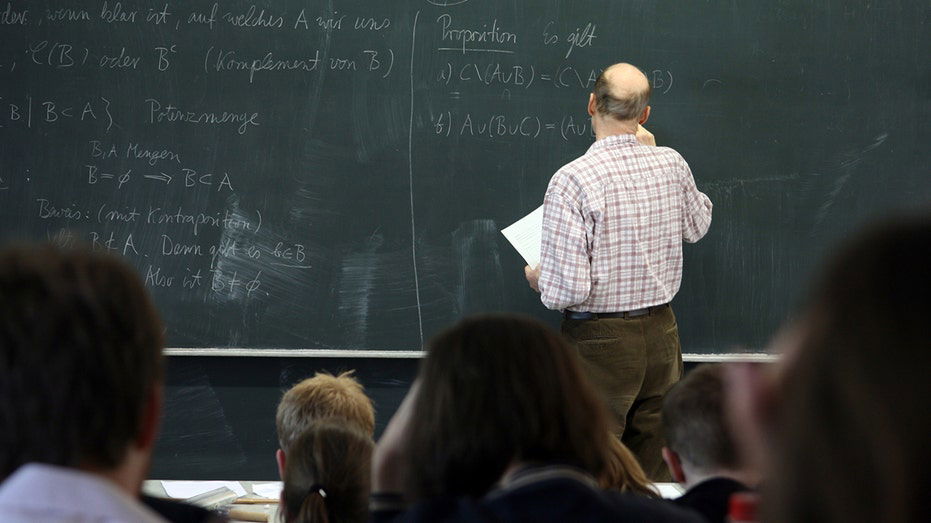 oder, wenn klar ist, auf welches A wir uns
, C(B) oder Bᶜ (Komplement von B)
B | B ⊂ A} Potenzmenge
B, A Mengen
: B = ∅ ⟹ B ⊂ A
Beweis: (mit Kontraposition)
B ⊄ A. Dann gilt es b∈B
Also ist B ≠ ∅.
Proposition Es gilt
a) C\(A∪B) = (C\A B)
b) A∪(B∪C) = (A∪